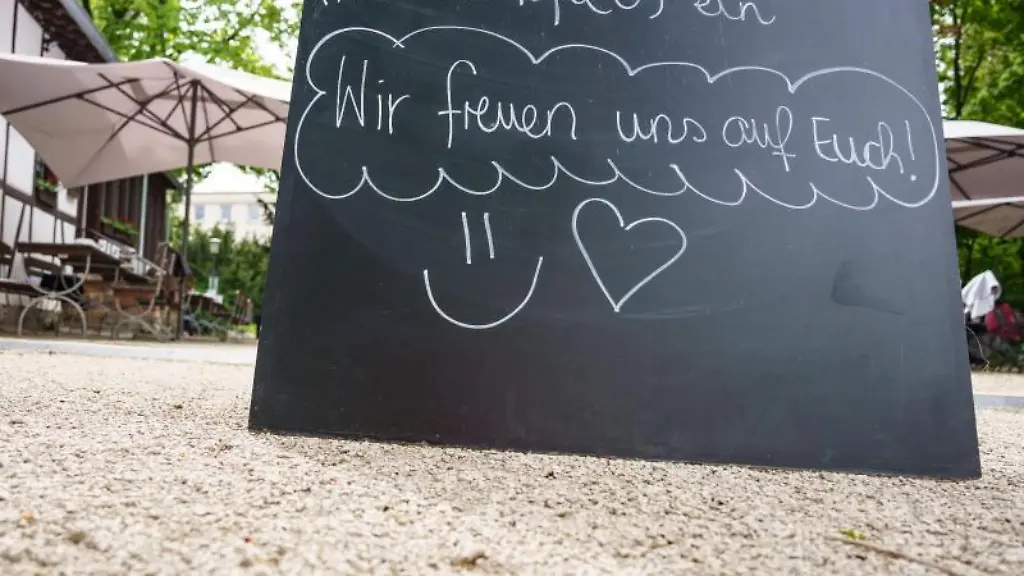 ein
Wir freuen uns auf Euch!